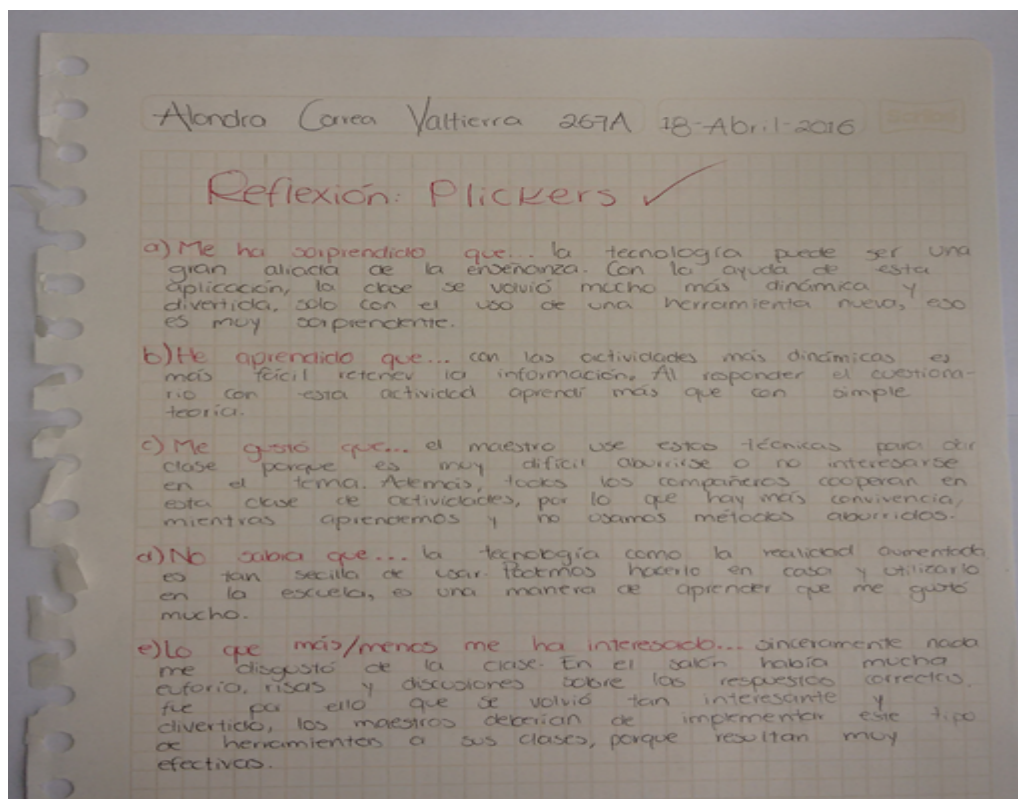 Alondra Correa Valtierra 267A 18-Abril-2016
Reflexión: Plickers ✓
a) Me ha sorprendido que... la tecnología puede ser una
gran aliada de la enseñanza. Con la ayuda de esta
aplicación, la clase se volvió mucho más dinámica y
divertida, solo con el uso de una herramienta nueva, eso
es muy sorprendente.
b) He aprendido que... con las actividades más dinámicas es
más fácil retener la información. Al responder el cuestiona-
rio con esta actividad aprendí más que con simple
teoría.
c) Me gustó que... el maestro use estas técnicas para dar
clase porque es muy difícil aburrirse o no interesarse
en el tema. Además, todos los compañeros cooperan en
esta clase de actividades, por lo que hay más convivencia,
mientras aprendemos y no usamos métodos aburridos.
d) No sabía que... la tecnología como la realidad aumentada
es tan secilla de usar. Podemos hacerlo en casa y utilizarlo
en la escuela, es una manera de aprender que me gustó
mucho.
e) Lo que más/menos me ha interesado... sinceramente nada
me disgustó de la clase. En el salón había mucha
euforia, risas y discusiones sobre las respuestas correctas,
fue por ello que se volvió tan interesante y
divertido, los maestros deberían de implementar este tipo
de herramientas a sus clases, porque resultan muy
efectivas.